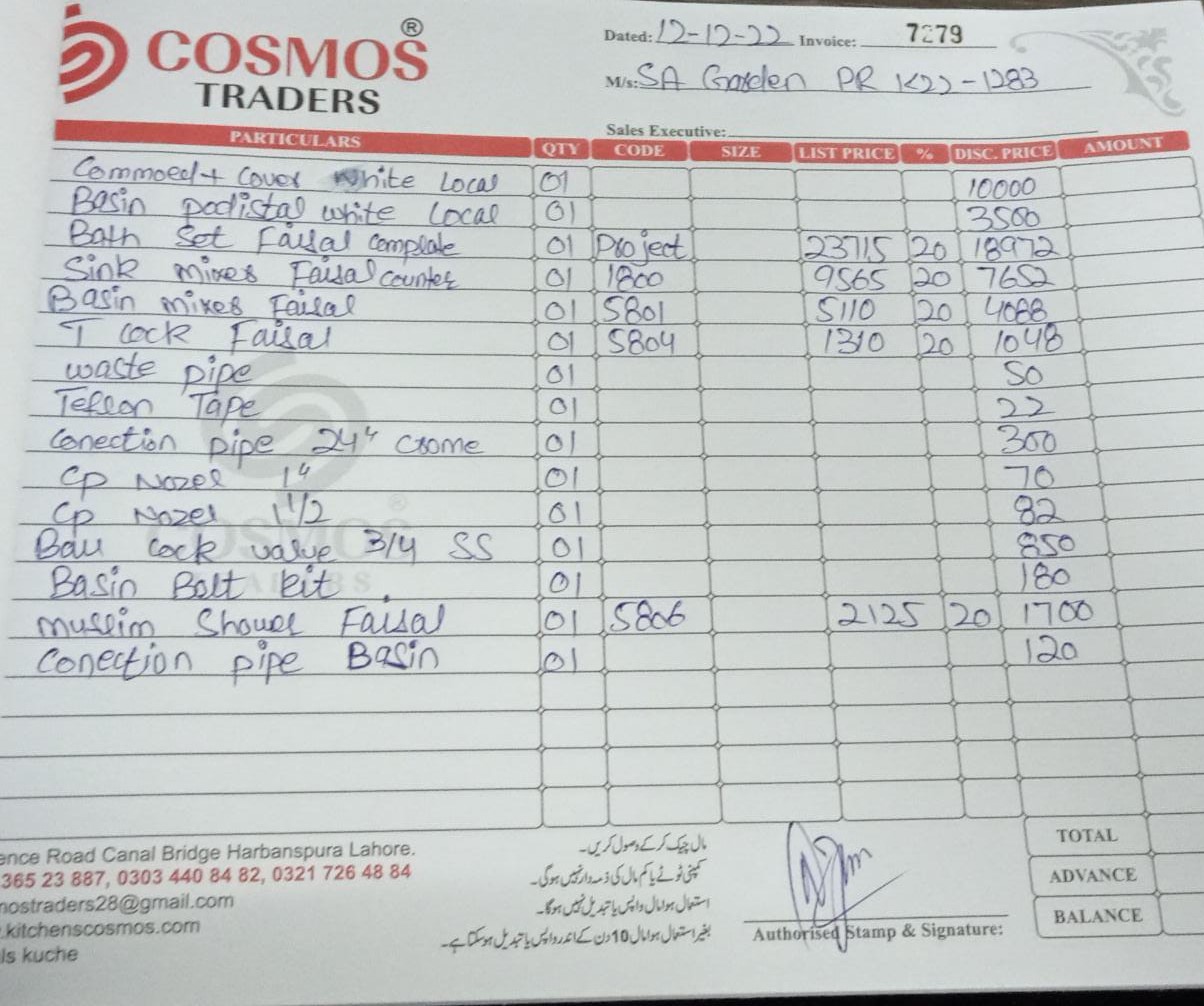 COSMOS ®
TRADERS
Dated: 12-12-22 Invoice: 7279
M/s: SA Garden PR K22-1283
Sales Executive:
PARTICULARS QTY CODE SIZE LIST PRICE % DISC. PRICE AMOUNT
Commoed + Cover white Local 01 10000
Basin pedistal white Local 01 3500
Bath Set Faisal Complate 01 Project 23715 20 18972
Sink mixer Faisal counter 01 1800 9565 20 7652
Basin mixer Faisal 01 5801 5110 20 4088
T Cock Faisal 01 5804 1310 20 1048
waste pipe 01 50
Teflon Tape 01 22
Conection pipe 24" Crome 01 300
CP Nozel 1" 01 70
CP Nozel 1 1/2 01 82
Ball Cock value 3/4 SS 01 850
Basin Bolt kit . 01 180
Muslim Shower Faisal 01 5806 2125 20 1700
Conection pipe Basin 01 120
ence Road Canal Bridge Harbanspura Lahore.
365 23 887, 0303 440 84 82, 0321 726 48 84
mostraders28@gmail.com
.kitchenscosmos.com
ls kuche
مال چیک کر کے وصول کریں۔
کمپنی ٹوٹے یا کم مال کی ذمہ دار نہیں ہوگی۔
استعمال ہوا مال واپس یا تبدیل نہیں ہوگا۔
بغیر استعمال ہوا مال 10 دن کے اندر واپس یا تبدیل ہو سکتا ہے۔
Authorised Stamp & Signature:
TOTAL
ADVANCE
BALANCE